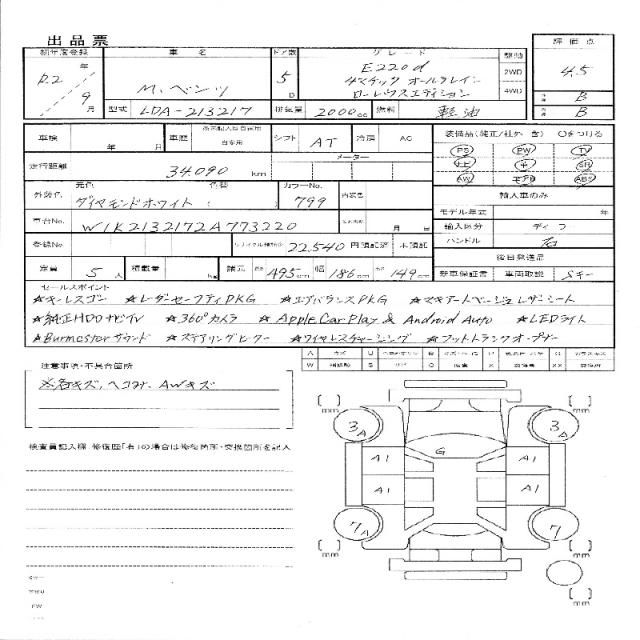 出品票
初年度登録 車名 ドア数 グレード 駆動 評価点
R.2 年 9 月
M.ベンツ
5 D
E220d
4マチック オールテレイン
ローレウスエディション
2WD
4WD
4.5
B
B
型式 LDA-213217 排気量 2000cc 燃料 軽油
車検 年 月 車歴 自家用 シフト AT 冷房 AC
装備品(純正/社外・含) ○をつける
PS PW TV
SR
AW ABS
走行距離 34,090 km メーター
外装色 元色 ダイヤモンドホワイト 色替 カラーNo. 799 内装色
輸入車のみ
モデル年式 年
車台No. W1K2132172A773220 月 日
輸入区分 ディーラ
ハンドル 右
登録No. リサイクル預託金 22,540 円預託済 未預託
後日発送品
定員 5 人 積載量 kg 諸元 長さ 495 cm 幅 186 cm 高さ 149 cm
新車保証書 車両取説 Sキー
セールスポイント
★キーレスゴー ★レーダーセーフティPKG ★エアバランスPKG ★マキアートベージュレザーシート
★純正HDDナビTV ★360°カメラ ★Apple CarPlay & Android Auto ★LEDライト
★Burmesterサウンド ★ステアリングヒーター ★ワイヤレスチャージング ★フットトランクオープナー
注意事項・不具合箇所
※各キズ、ヘコミ、AWキズ
検査員記入欄 修復歴「有」の場合は修復箇所・交換箇所を記入
[ ] mm
[ ] mm
3A
3A
G
A1
A1
A1
A1
7A
7
[ ] mm
[ ] mm